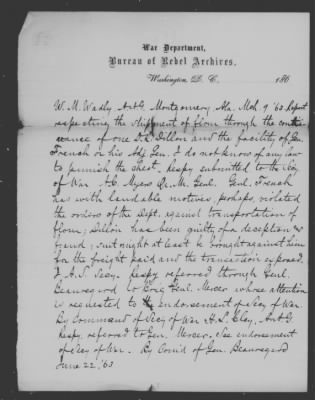 War Department,
Bureau of Rebel Archives,
Washington D. C. 186
W. M. Wadly, A.A.G. Montgomery, Ala. Mch. 9 '63 Report
respecting the shipment of flour through the
vance of one D. R. Dillon and the facility of Gen.
French or his Adj. Gen. I do not know of any law
to punish the cheat. Respy submitted to the Secy
of War. A.C. Myers Q.M. Genl. Genl. French
has with laudable motives, perhaps, violated
the orders of the Dept. against transportation of
flour; Dillon has been guilty of a deception &
fraud; suit might at least be brought against him
for the freight paid and the transaction exposed.
J.A.S. Secy. Respy referred through Genl.
Beauregard to Brig. Genl. Mercer whose attention
is requested to the endorsement of Secy of War.
By Command of Secy of War H. L. Clay, A.A.G.
Respy. referred to Gen. Mercer. See endorsement
of Secy of War. By Com'd of Gen. Beauregard
June 22 '63